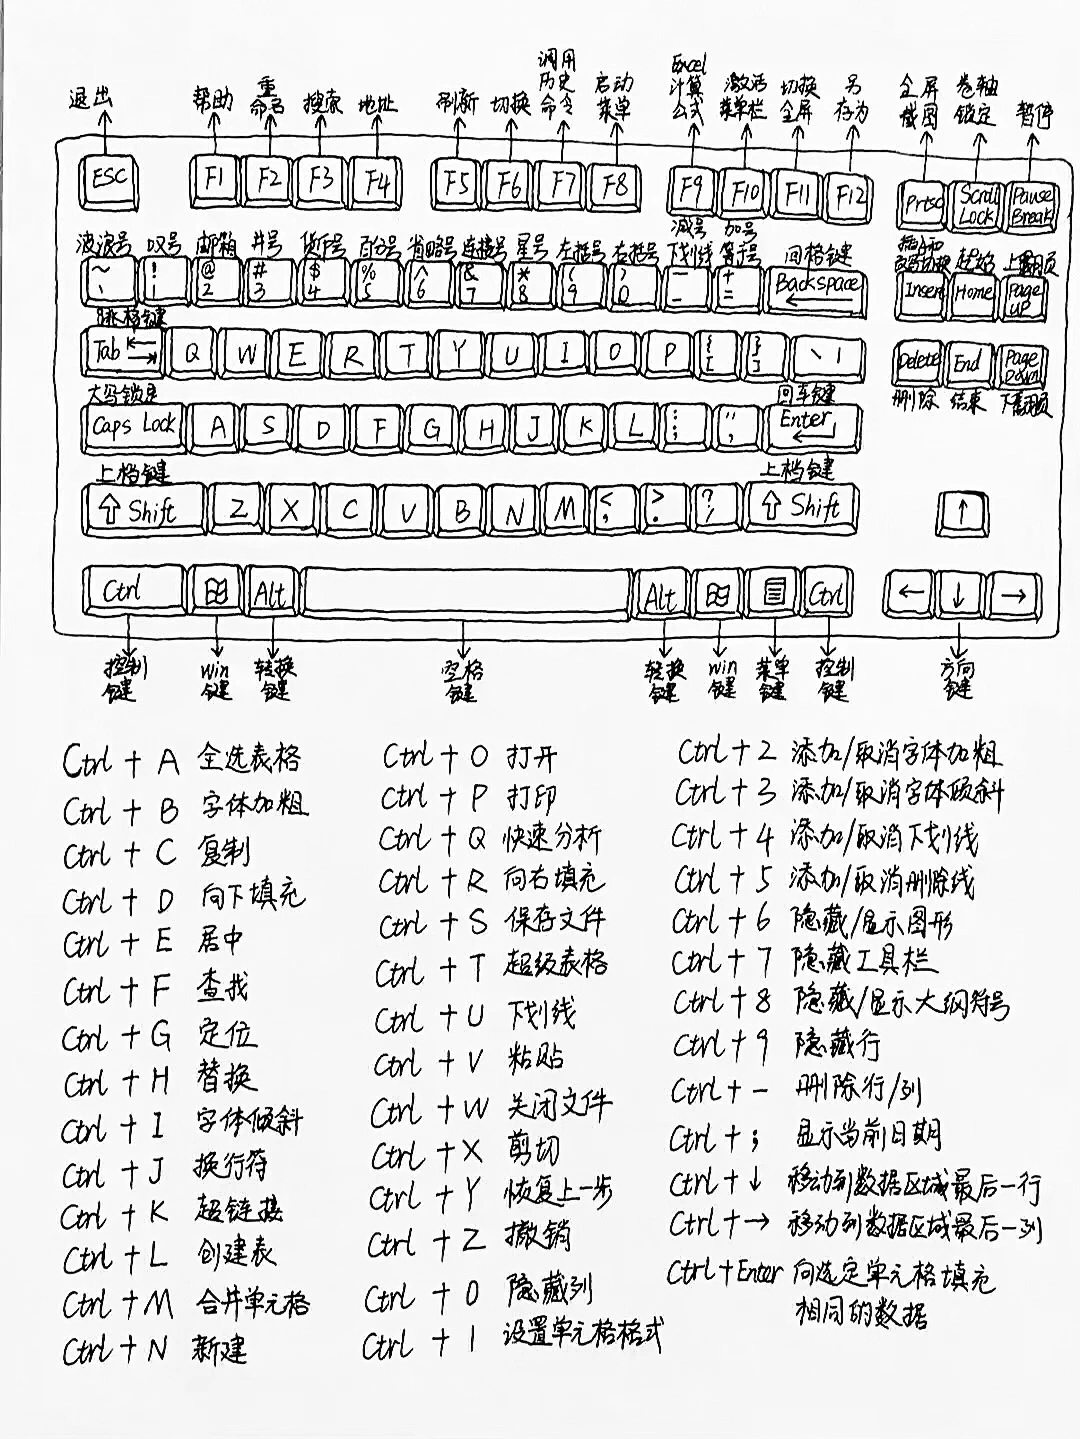 退出 帮助 重命名 搜索 地址 刷新 切换 调用历史命令 启动菜单 Excel计算公式 激活菜单栏 切换全屏 另存为 全屏截图 卷轴锁定 暂停
ESC F1 F2 F3 F4 F5 F6 F7 F8 F9 F10 F11 F12 Prtsc Scroll Lock Pause Break
波浪号 叹号 邮箱 井号 货币号 百分号 省略号 连接号 星号 左括号 右括号 减号 下划线 加号 等于号 回格键 起始
~ ` ! 1 @ 2 # 3 $ 4 % 5 ^ 6 & 7 * 8 ( 9 ) 0 — _ + = Backspace Insert Home Page UP
Tab Q W E R T Y U I O P { [ } ] \ | Delete End Page Down
大写锁定 回车键 删除 结束 下翻页
Caps Lock A S D F G H J K L : ; " , Enter
上档键 上档键
Shift Z X C V B N M < , > . ? / Shift ↑
Ctrl Alt Alt Ctrl ← ↓ →
控制键 win键 转换键 空格键 转换键 win键 菜单键 控制键 方向键
Ctrl + A 全选表格
Ctrl + B 字体加粗
Ctrl + C 复制
Ctrl + D 向下填充
Ctrl + E 居中
Ctrl + F 查找
Ctrl + G 定位
Ctrl + H 替换
Ctrl + I 字体倾斜
Ctrl + J 换行符
Ctrl + K 超链接
Ctrl + L 创建表
Ctrl + M 合并单元格
Ctrl + N 新建
Ctrl + O 打开
Ctrl + P 打印
Ctrl + Q 快速分析
Ctrl + R 向右填充
Ctrl + S 保存文件
Ctrl + T 超级表格
Ctrl + U 下划线
Ctrl + V 粘贴
Ctrl + W 关闭文件
Ctrl + X 剪切
Ctrl + Y 恢复上一步
Ctrl + Z 撤销
Ctrl + 0 隐藏列
Ctrl + 1 设置单元格格式
Ctrl + 2 添加/取消字体加粗
Ctrl + 3 添加/取消字体倾斜
Ctrl + 4 添加/取消下划线
Ctrl + 5 添加/取消删除线
Ctrl + 6 隐藏/显示图形
Ctrl + 7 隐藏工具栏
Ctrl + 8 隐藏/显示大纲符号
Ctrl + 9 隐藏行
Ctrl + - 删除行/列
Ctrl + ; 显示当前日期
Ctrl + ↓ 移动到数据区域最后一行
Ctrl + → 移动到数据区域最后一列
Ctrl + Enter 向选定单元格填充
相同的数据